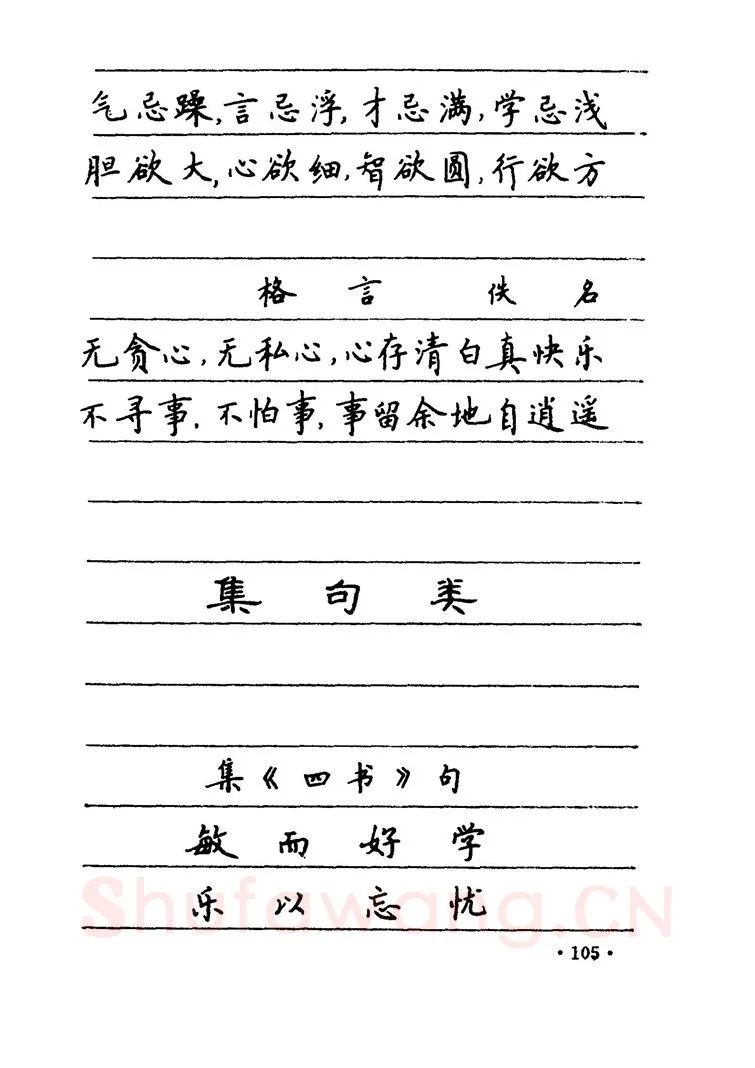 气忌躁,言忌浮,才忌满,学忌浅
胆欲大,心欲细,智欲圆,行欲方
格言 佚名
无贪心,无私心,心存清白真快乐
不寻事,不怕事,事留余地自逍遥
集句类
集《四书》句
敏而好学
乐以忘忧
Shufawang.CN
·105·